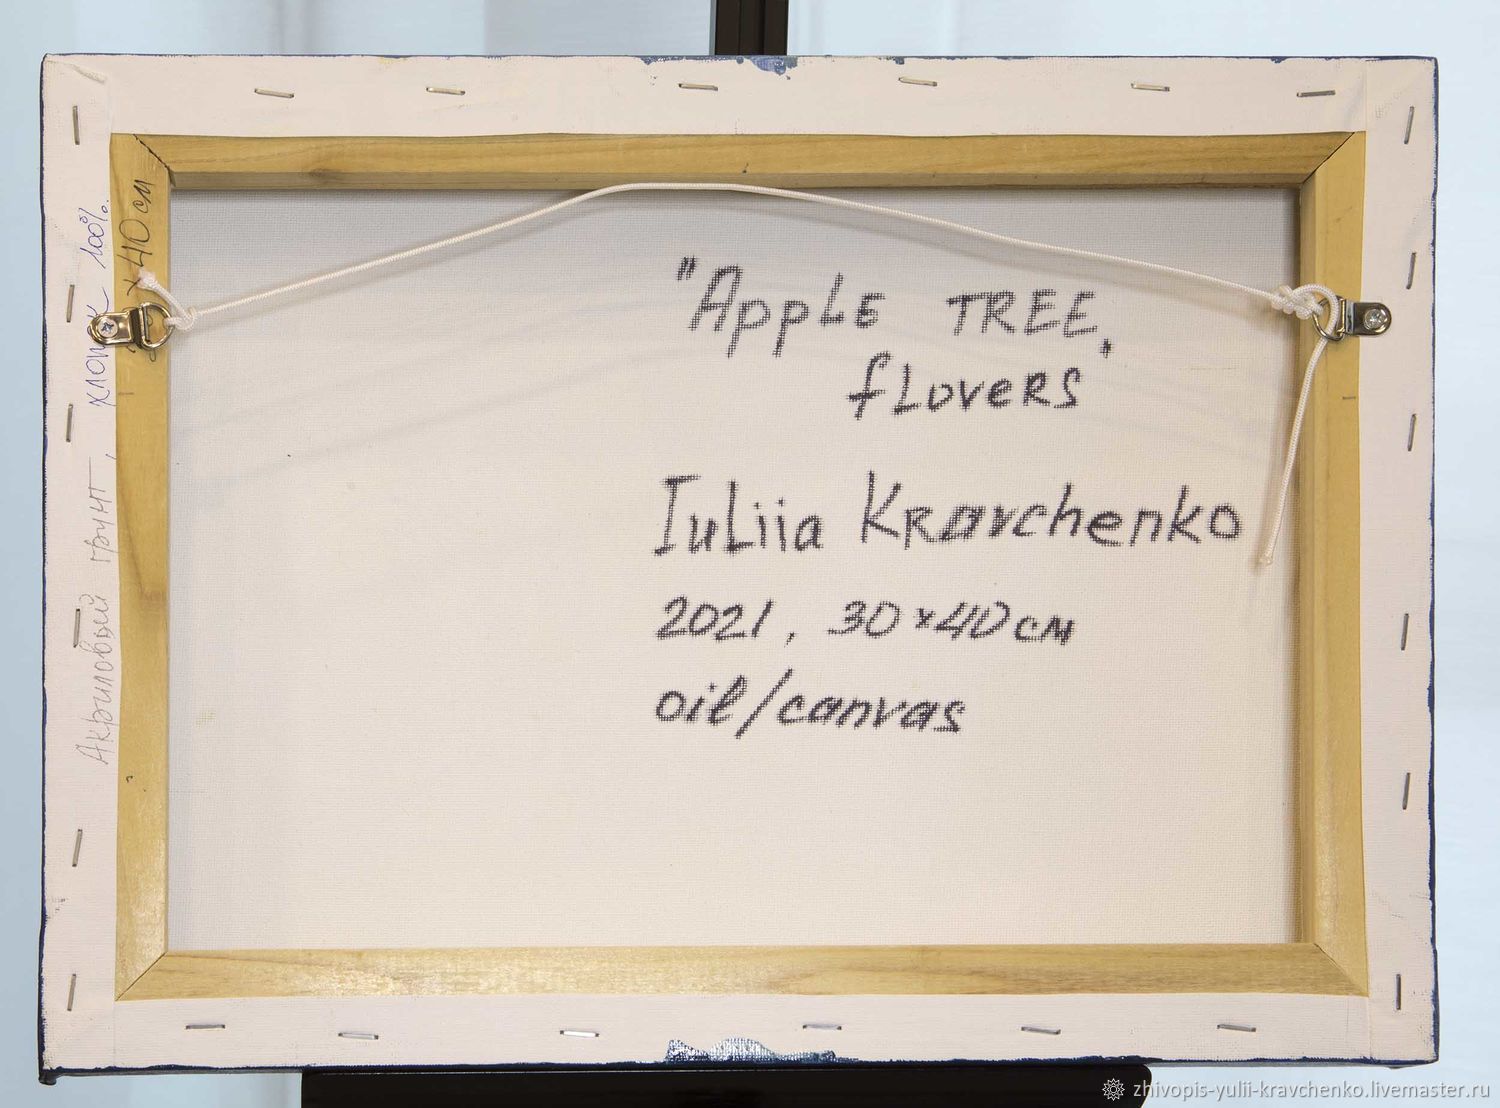 "Apple TREE,
fLovers
Iuliia Kravchenko
2021, 30×40 см
oil/canvas
Акриловый грунт, хлопок 100%.
×40 см
zhivopis-yulii-kravchenko.livemaster.ru